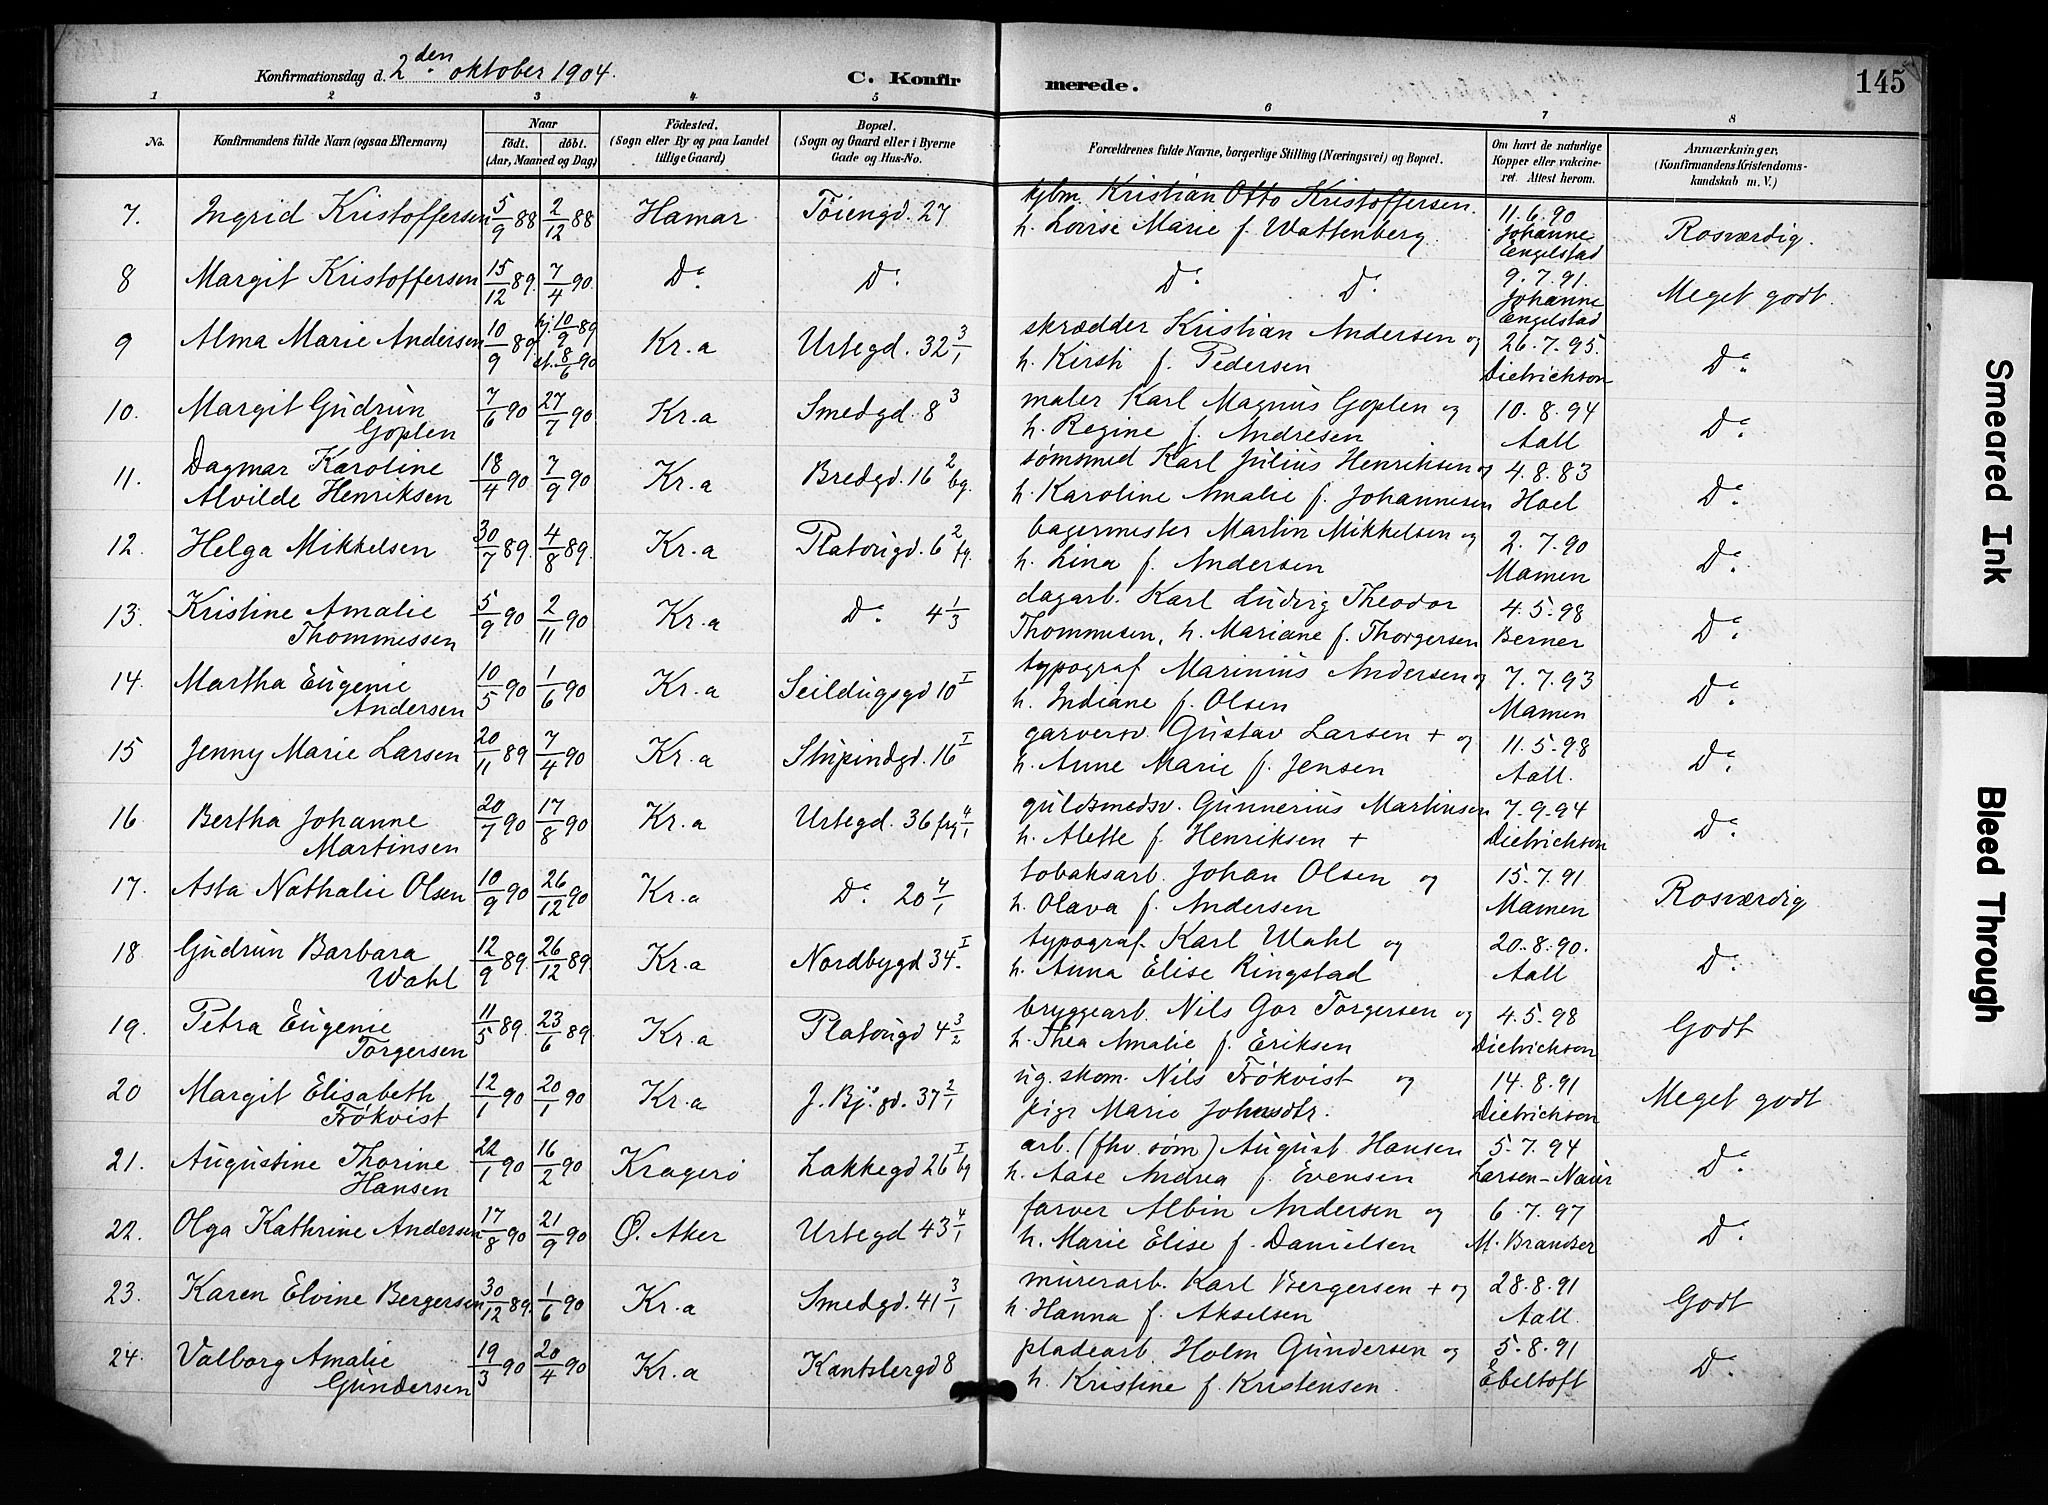 Konfirmationsdag d. 2den oktober 1904.
C. Konfirmerede.
145
1 2 3 4 5 6 7 8
No.
Konfirmandens fulde Navn (ogsaa Efternavn)
Naar
født. døbt.
(Aar, Maaned og Dag)
Fødested.
(Sogn eller By og paa Landet
tillige Gaard)
Bopæl.
(Sogn og Gaard eller i Byerne
Gade og Hus-No.
Forældrenes fulde Navne, borgerlige Stilling (Næringsvei) og Bopæl.
Om havt de naturlige
Kopper eller vakcine-
ret. Attest herom.
Anmærkninger,
(Konfirmandens Kristendoms-
kundskab m. V.)
7. Ingrid Kristoffersen 5/9 88 2/12 88 Hamar Töiengd. 27 kjbm. Kristian Otto Kristoffersen.
h. Lovise Marie f. Wattenberg 11.6.90 Johanne Engelstad Rosværdig.
8 Margit Kristoffersen 15/12 89. 7/4 90. Do. Do. Do. Do. 9.7.91. Johanne Engelstad Meget godt.
9 Alma Marie Andersen 10/9 89 hj. 10/9 89 st. 8/6 90 Kr.a Urtegd. 32 3/1 skrædder Kristian Andersen og
h. Kirsti f. Pedersen 26.7.95. Dietrichson Do.
10. Margit Gudrun
Goplen 7/6 90 27/7 90. Kr.a Smedgd. 8 3 maler Karl Magnus Goplen og
h. Regine f. Andresen 10.8.94 Aall Do.
11. Dagmar Karoline
Alvilde Henriksen 18/4 90 7/9 90 Kr.a Bredgd. 16 2 bg. sömsmed Karl Julius Henriksen og
h. Karoline Amalie f. Johannesen 4.8.83 Hoel Do.
12. Helga Mikkelsen 30/7 89. 4/8 89. Kr.a Platougd. 6 2 fg. bagermester Martin Mikkelsen og
h. Lina f. Andersen 2.7.90 Mamen Do.
13. Kristine Amalie
Thommessen 5/9 90 2/11 90 Kr.a Do. 4 1/3 dagarb. Karl Ludvig Theodor
Thommesen, h. Mariane f. Thorgersen 4.5.98 Berner Do.
14. Martha Eugenie
Andersen 10/5 90 1/6 90 Kr.a Seildugsgd 10 I typograf Marinius Andersen og
h. Indiane f. Olsen 7.7.93 Mamen Do.
15 Jenny Marie Larsen 20/11 89 7/4 90 Kr.a Stupindgd. 16 I garversv. Gustav Larsen + og
h. Anne Marie f. Jensen 11.5.98 Aall. Do.
16 Bertha Johanne
Martinsen 20/7 90 17/8 90 Kr.a Urtegd. 36 frg 4/1 guldsmedsv. Gunnerius Martinsen
h. Alette f. Henriksen + 7.9.94 Dietrichson Do.
17. Asta Nathalie Olsen 10/9 90 26/12 90 Kr.a Do. 20 4/1 tobaksarb. Johan Olsen og
h. Olava f. Andersen 15.7.91 Mamen Rosværdig
18. Gudrun Barbara
Wahl 12/9 89. 26/12 89. Kr.a Nordbygd 34. I typograf. Karl Wahl og
h. Anna Elise Ringstad 20.8.90. Aall Do.
19. Petra Eugenie
Torgersen 11/5 89. 23/6 89 Kr.a Platougd 4 3/2 bryggearb. Nils Gor Torgersen og
h. Thea Amalie f. Eriksen 4.5.98 Dietrichson Godt
20 Margit Elisabeth
Frökvist 12/1 90 20/1 90 Kr.a J. Bj. gd. 37 2/1 ug. skom. Nils Frökvist og
pige Marie Johnsdtr. 14.8.91 Dietrichson Meget godt
21. Augustine Thorine
Hansen 22/1 90 16/2 90 Kragerö Lakkegd 26 I bg arb. (fhv. söm) August Hansen
h. Aase Andrea f. Evensen 5.7.94 Larsen-Naur Do.
22. Olga Kathrine Andersen 17/8 90 21/9 90 Ø. Aker Urtegd 43 4/1 farver Albin Andersen og
h. Marie Elise f. Danielsen 6.7.97 M. Brandser Do.
23. Karen Elvine Bergersen 30/12 89. 1/6 90 Kr.a Smedgd. 41 3/1 murerarb. Karl Bergersen + og
h. Hanna f. Akselsen 28.8.91 Aall. Godt
24. Valborg Amalie
Gundersen 19/3 90 20/4 90 Kr.a Kantslergd 8 pladearb. Holm Gundersen og
h. Kristine f. Kristensen. 5.8.91 Ebeltoft Do.
Smeared Ink
Bleed Through